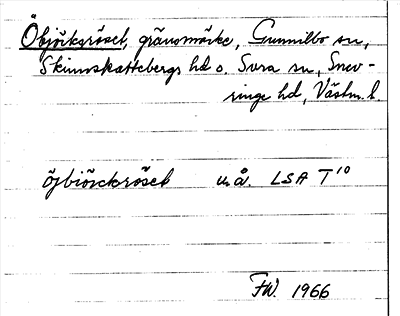 Öbjörksröset, gränsmärke, Gunnilbo sn,
Skinnskattebergs hd o. Sura sn, Snev-
ringe hd, Västm. l.
öjbiörckröset u.å. LSA T10
FW. 1966